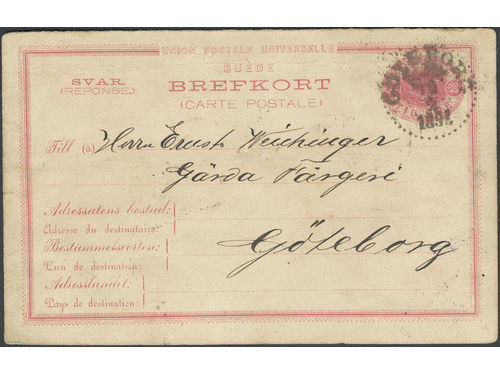 UNION POSTALE UNIVERSELLE
SUÈDE
SVAR.
(RÉPONSE)
BREFKORT
(CARTE POSTALE)
GÖTEBORG
1892
Till (à) Herrn Ernst Weichinger
Gårda Färgeri
Adressatens bostad:
Adresse du destinataire:
Göteborg
Bestämmelseorten:
Lieu de destination:
Adresslandet:
Pays de destination: